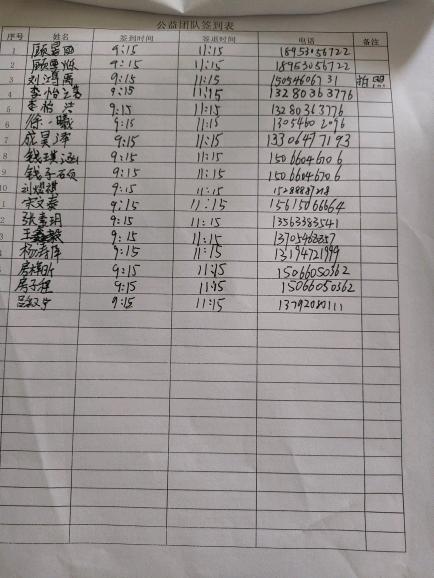 公益团队签到表
序号 姓名 签到时间 签退时间 电话 备注
1 9:15 11:15 18953056722
2 9:15 11:15 18953056722
3 9:15 11:15 15054606731 拍照
4 9:15 11:15 13280363776
5 李怡 9:15 11:15 13280363776
6 徐一曦 9:15 11:15 13054602096
7 成昊泽 9:15 11:15 13306477193
8 钱琪涵 9:15 11:15 1506604606
9 钱子硕 9:15 11:15 1506604606
10 刘熠祺 9:15 11:15
1 宋文泰 9:15 11:15 15615066664
2 张秀玥 9:15 11:15 13563383541
3 王鑫毅 9:15 11:15
4 杨浩泽 9:15 11:15 13194721999
房祺昕 9:15 11:15 15066050362
房子程 9:15 11:15 15066050362
9:15 11:15 13792081111